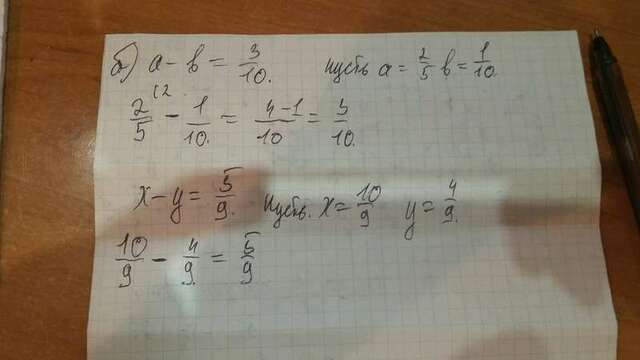 б) a - в = 3/10. пусть a = 2/5 в = 1/10.
2/5 (2 - 1/10. = 4-1/10 = 3/10.
x - y = 5/9. пусть. x = 10/9 y = 4/9.
10/9 - 4/9. = 5/9